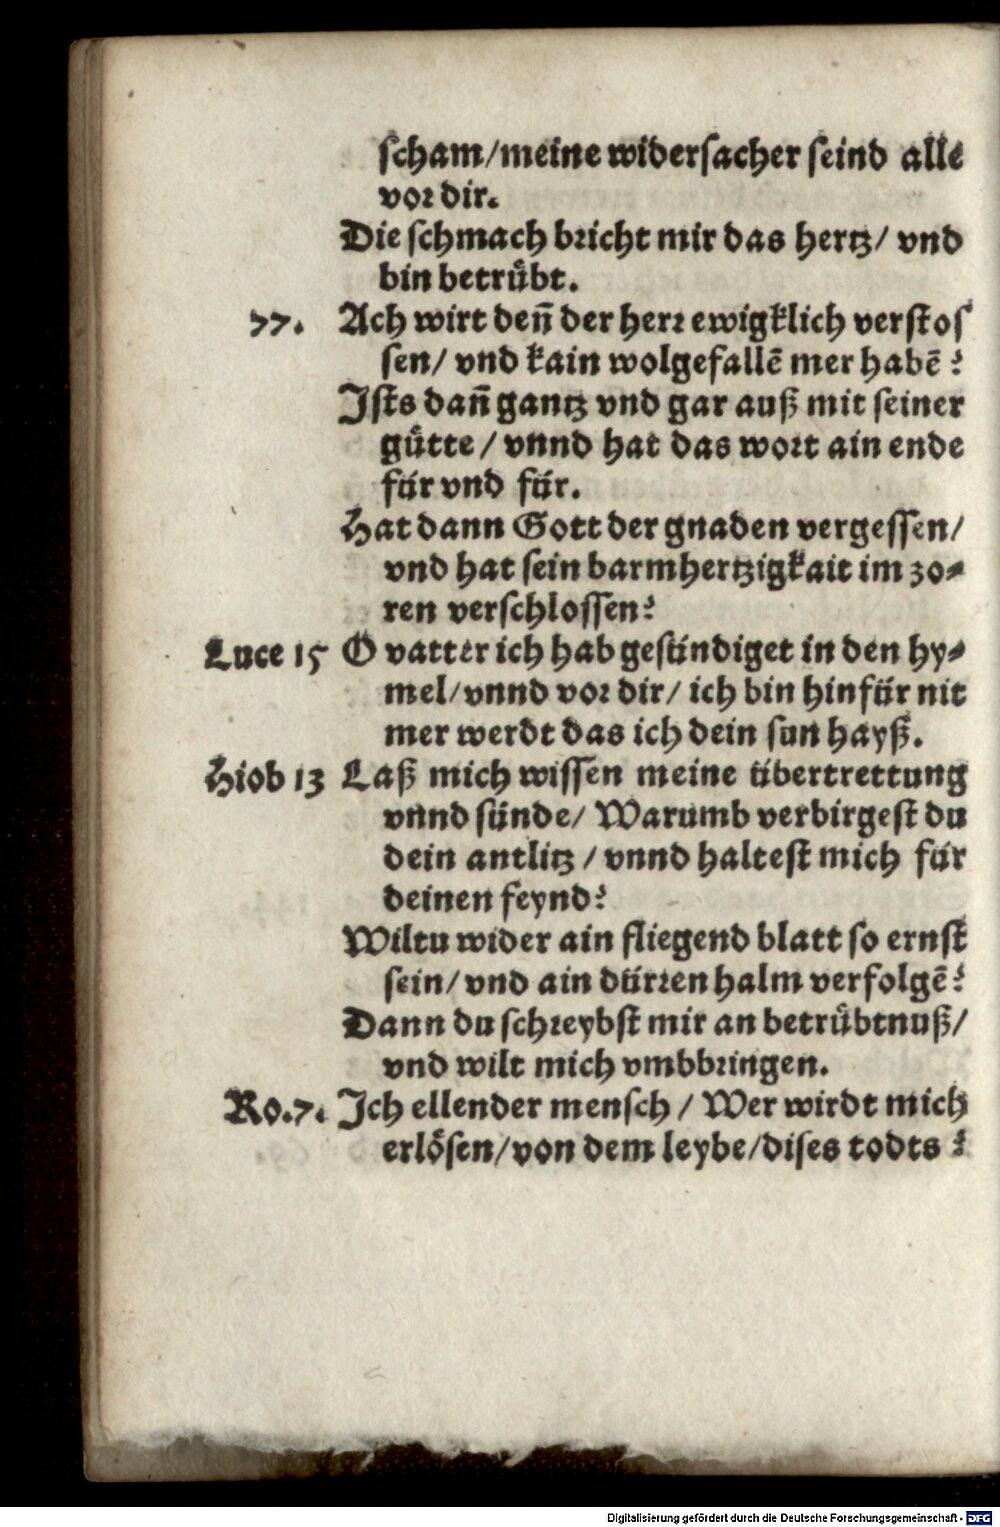 ſcham/meine widerſacher ſeind alle
vor dir.
Die ſchmach bricht mir das hertz/ vnd
bin betruͤbt.
77. Ach wirt deñ der herr ewigklich verſtoſ
ſen/ vnd kain wolgefallē mer habē?
Iſts dañ gantz vnd gar auß mit ſeiner
guͤtte / vnnd hat das wort ain ende
für vnd für.
Hat dann Gott der gnaden vergeſſen/
vnd hat ſein barmhertzigkait im zo⸗
ren verſchloſſen?
Luce 15 O vatter ich hab geſündiget in den hy⸗
mel/vnnd vor dir/ ich bin hinfür nit
mer werdt das ich dein ſun hayß.
Hiob 13 Laß mich wiſſen meine übertrettung
vnnd ſünde/ Warumb verbirgeſt du
dein antlitz / vnnd halteſt mich für
deinen feynd?
Wiltu wider ain fliegend blatt ſo ernſt
ſein/ vnd ain dürren halm verfolgē?
Dann du ſchreybſt mir an betruͤbtnuß/
vnd wilt mich vmbbringen.
Ro.7. Ich ellender menſch / Wer wirdt mich
erloͤſen/von dem leybe/diſes todts ?
Digitalisierung gefördert durch die Deutsche Forschungsgemeinschaft - DFG